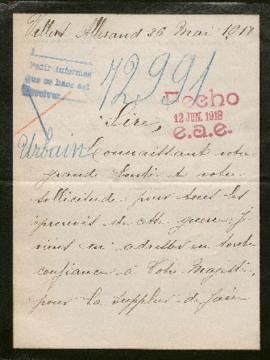 Allerand 26 Mai 1918
Pedir informes
que se hace así
72991
Hecho
12 JUN. 1918
e.a.e.
Sire,
Urbain
Connaissant votre
grande bonté et votre
sollicitude pour tous les
éprouvés de cette guerre, je
viens en adresser en toute
confiance à Votre Majesté,
pour la supplier de faire